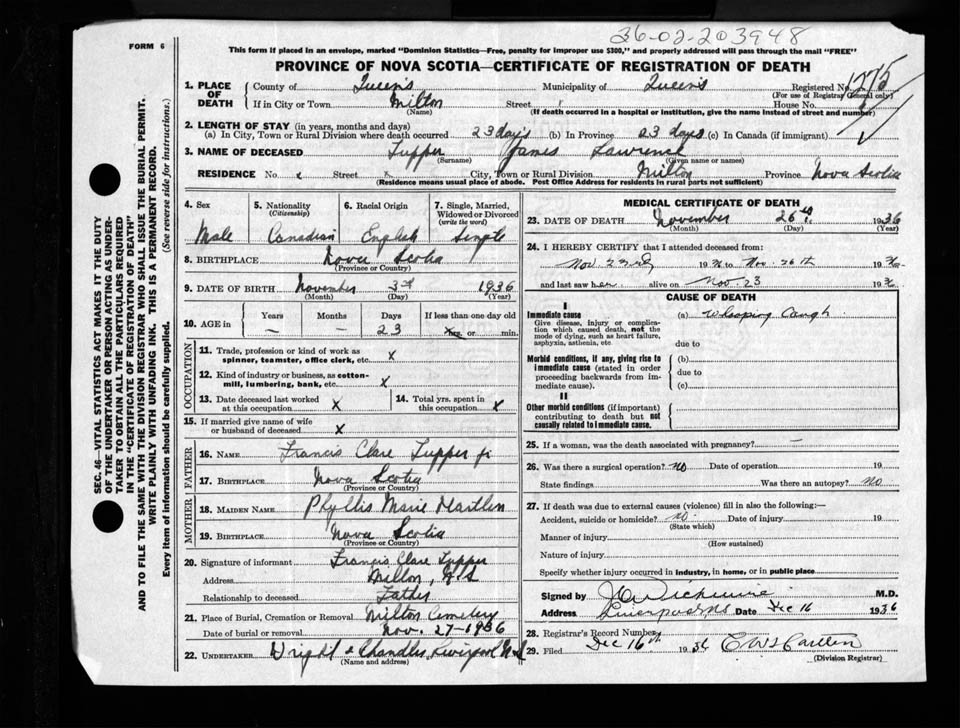 36-02-203948
FORM 6
This form if placed in an envelope, marked "Dominion Statistics—Free, penalty for improper use $300," and properly addressed will pass through the mail "FREE"
PROVINCE OF NOVA SCOTIA—CERTIFICATE OF REGISTRATION OF DEATH
1. PLACE OF DEATH County of Queen's Municipality of Queen's Registered No. 1275
(For use of Registrar General only)
If in City or Town Milton Street House No.
(Name) (If death occurred in a hospital or institution, give the name instead of street and number)
2. LENGTH OF STAY (in years, months and days)
(a) In City, Town or Rural Division where death occurred 23 days (b) In Province 23 days (c) In Canada (if immigrant)
3. NAME OF DECEASED Tupper James Lawrence
(Surname) (Given name or names)
RESIDENCE No. x Street x City, Town or Rural Division Milton Province Nova Scotia
(Residence means usual place of abode. Post Office Address for residents in rural parts not sufficient)
SEC. 46—VITAL STATISTICS ACT MAKES IT THE DUTY
OF THE UNDERTAKER OR PERSON ACTING AS UNDER-
TAKER TO OBTAIN ALL THE PARTICULARS REQUIRED
IN THE "CERTIFICATE OF REGISTRATION OF DEATH"
AND TO FILE THE SAME WITH THE DIVISION REGISTRAR WHO SHALL ISSUE THE BURIAL PERMIT.
WRITE PLAINLY WITH UNFADING INK. THIS IS A PERMANENT RECORD.
Every item of information should be carefully supplied. (See reverse side for instructions.)
4. Sex 5. Nationality 6. Racial Origin 7. Single, Married,
(Citizenship) Widowed or Divorced
(write the word)
Male Canadian English Single
8. BIRTHPLACE Nova Scotia
(Province or Country)
9. DATE OF BIRTH November 3rd 1936
(Month) (Day) (Year)
10. AGE in Years Months Days If less than one day old
— — 23 hrs. or min.
OCCUPATION
11. Trade, profession or kind of work as
spinner, teamster, office clerk, etc. x
12. Kind of industry or business, as cotton-
mill, lumbering, bank, etc. x
13. Date deceased last worked
at this occupation x
14. Total yrs. spent in
this occupation x
15. If married give name of wife
or husband of deceased x
FATHER
16. NAME Francis Clare Tupper jr
17. BIRTHPLACE Nova Scotia
(Province or Country)
MOTHER
18. MAIDEN NAME Phyllis Marie Hartlen
19. BIRTHPLACE Nova Scotia
(Province or Country)
20. Signature of informant Francis Clare Tupper
Address Milton, N.S
Relationship to deceased Father
21. Place of Burial, Cremation or Removal Milton Cemetery
Date of burial or removal Nov. 27-1936
22. UNDERTAKER Wright & Chandler, Liverpool N.S
(Name and address)
MEDICAL CERTIFICATE OF DEATH
23. DATE OF DEATH November 26th 1936
(Month) (Day) (Year)
24. I HEREBY CERTIFY that I attended deceased from:
Nov. 23rd 1936 to Nov. 26th 1936
and last saw him alive on Nov. 23 1936
CAUSE OF DEATH
I
Immediate cause (a) Whooping Cough
Give disease, injury or complica-
tion which caused death, not the
mode of dying, such as heart failure,
asphyxia, asthenia, etc. due to
Morbid conditions, if any, giving rise to (b)
immediate cause (stated in order due to
proceeding backwards from im-
mediate cause). (c)
II
Other morbid conditions (if important)
contributing to death but not
causally related to immediate cause.
25. If a woman, was the death associated with pregnancy? —
26. Was there a surgical operation? No Date of operation 19
State findings Was there an autopsy? No
27. If death was due to external causes (violence) fill in also the following:—
Accident, suicide or homicide? no Date of injury 19
(State which)
Manner of injury
(How sustained)
Nature of injury
Specify whether injury occurred in industry, in home, or in public place
Signed by M.D.
Address Liverpool NS Date Dec 16 1936
28. Registrar's Record Number
29. Filed Dec 16th 1936
(Division Registrar)